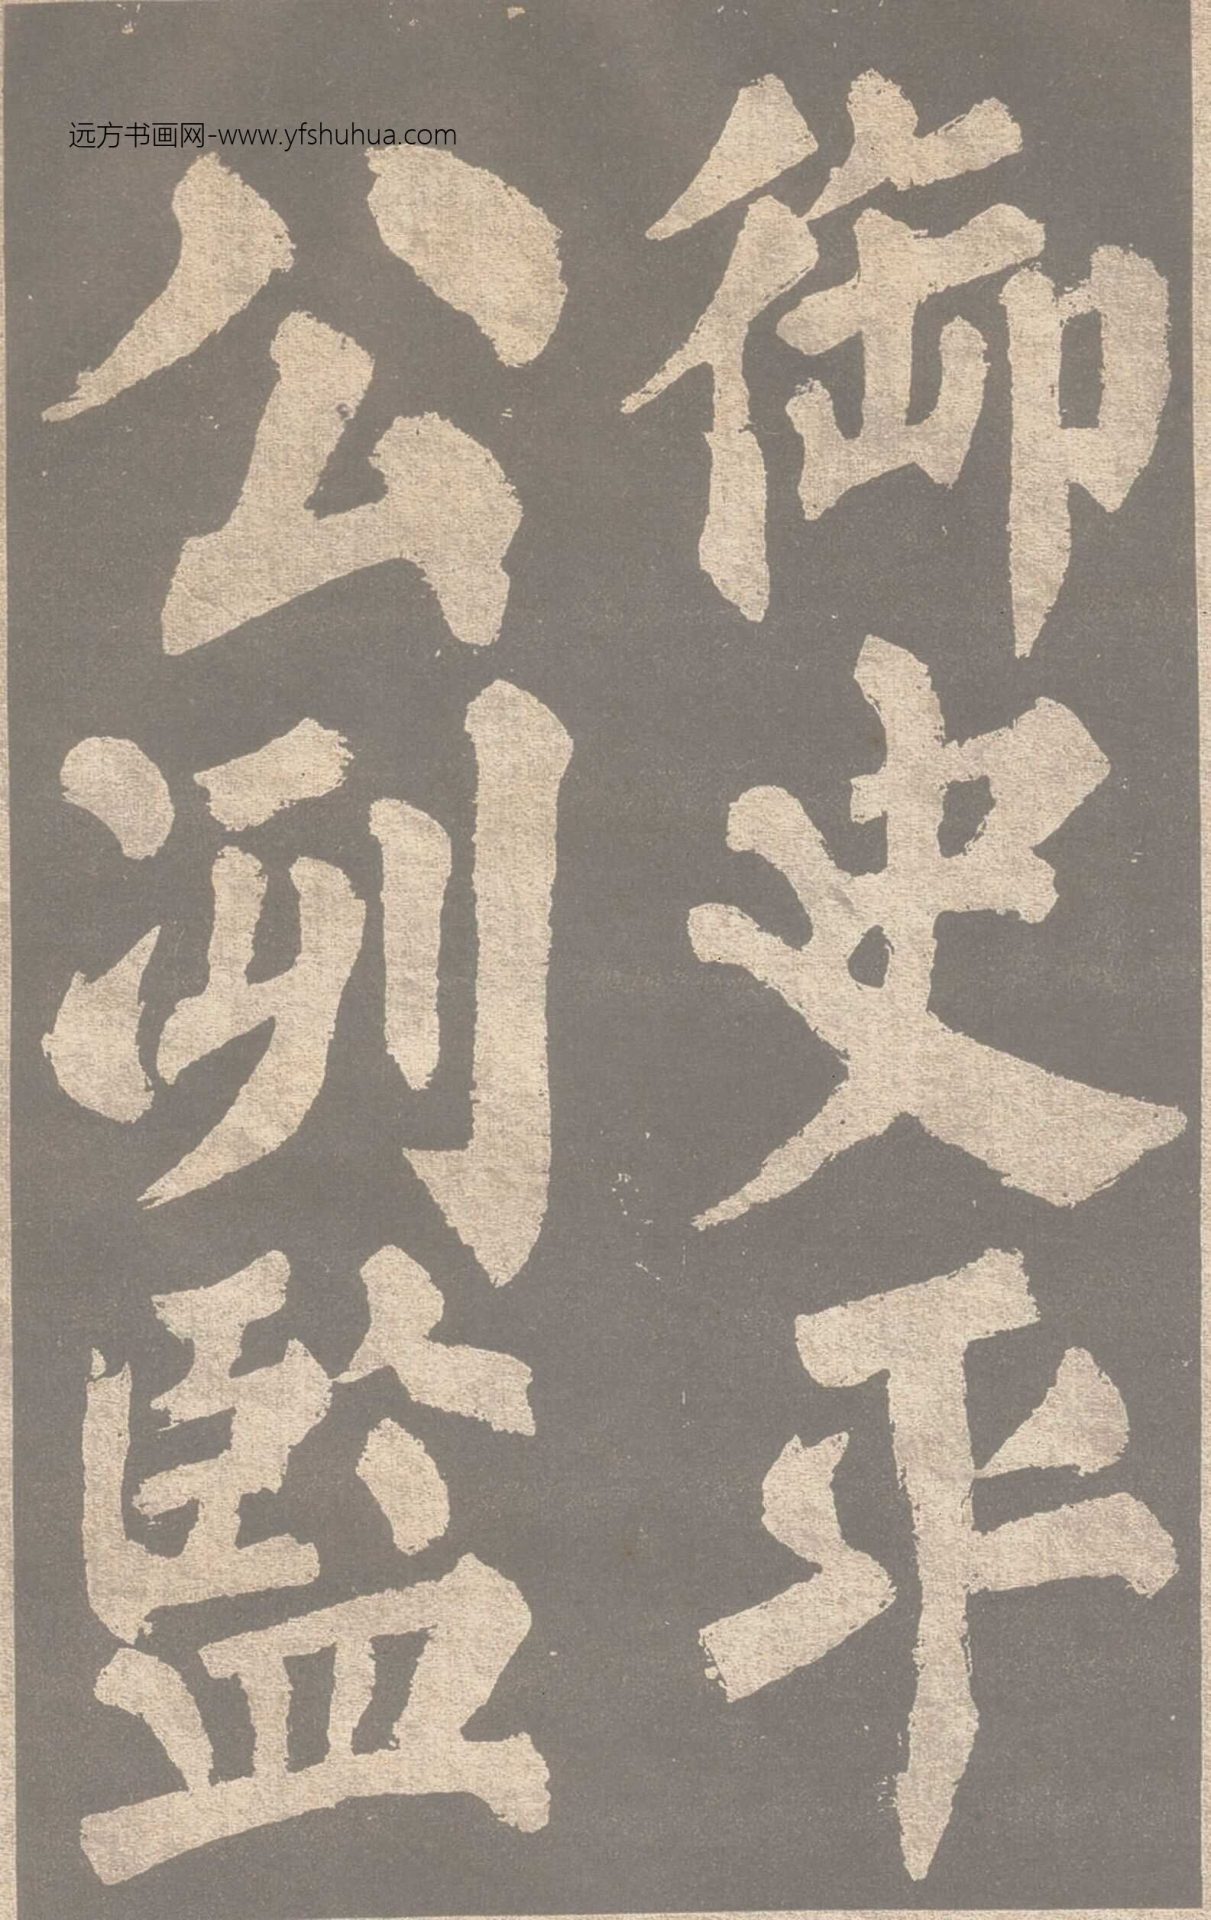 御史平
公冽監
远方书画网-www.yfshuhua.com